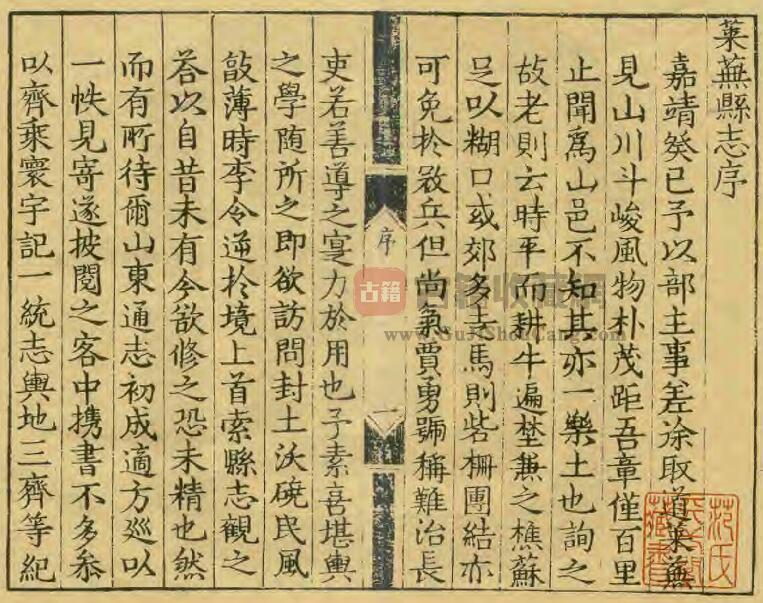 萊蕪縣志序
嘉靖癸巳予以部主事差涂取道萊蕪
見山川斗峻風物朴茂距吾章僅百里
止聞爲山邑不知其亦一樂土也詢之
故老則云時平而耕牛遍埜兼之樵蘇
足以糊口或郊多走馬則砦柵團結亦
可免於殺兵但尚氣賈勇號稱難治長
序
一
吏若善導之寔力於用也予素喜堪輿
之學随所之即欲訪問封土沃磽民風
敲薄時李令逆於境上首索縣志觀之
荅以自昔未有今欲修之恐未精也然
而有所待爾山東通志初成適方巡以
一帙見寄遂披閱之客中携書不多叅
以齊乘寰宇記一統志輿地三齊等紀
范氏
藏書
古籍
古籍收藏網
www.GuJiShouCang.com